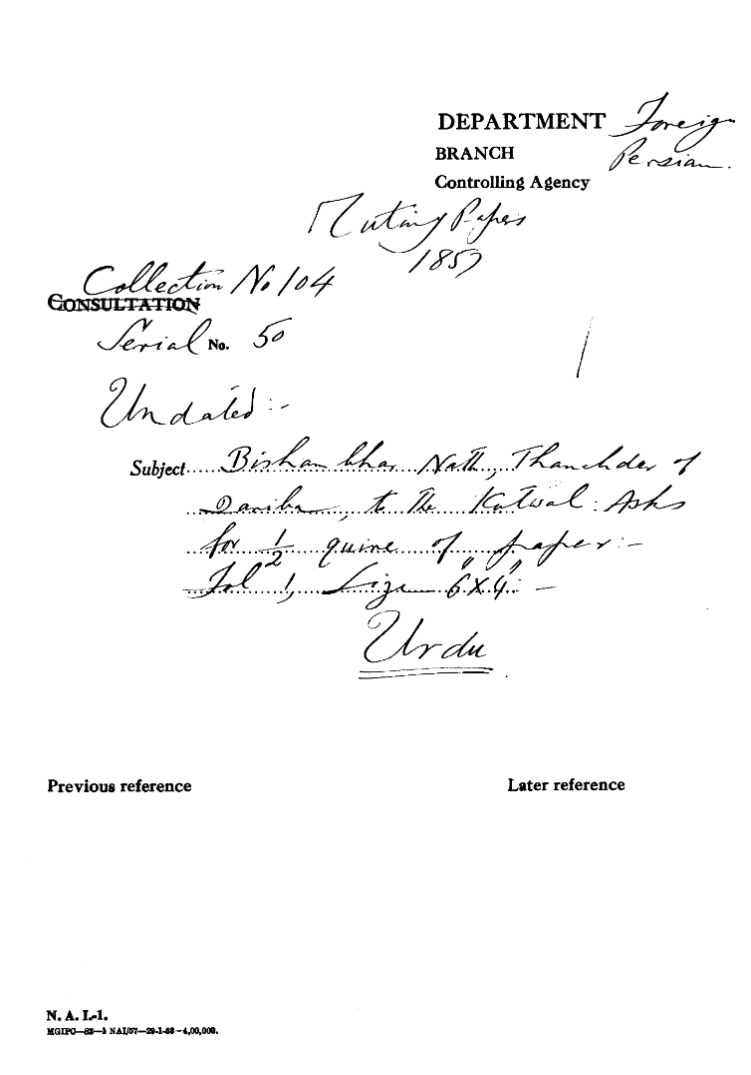 DEPARTMENT Foreign
BRANCH Persian.
Controlling Agency
Mutiny Papers
1857
Collection No 104
CONSULTATION
Serial No. 50
Undated:-
Subject Bishambhar Nath, Thanehdar of
Dariba, to the Kotwal: Asks
for 1/2 quire of paper:-
Fol 1, Size 6"x4":-
Urdu
Previous reference Later reference
N. A. I.-1.
MGIPC—82—1 NAI/57—29-1-58—4,00,000.